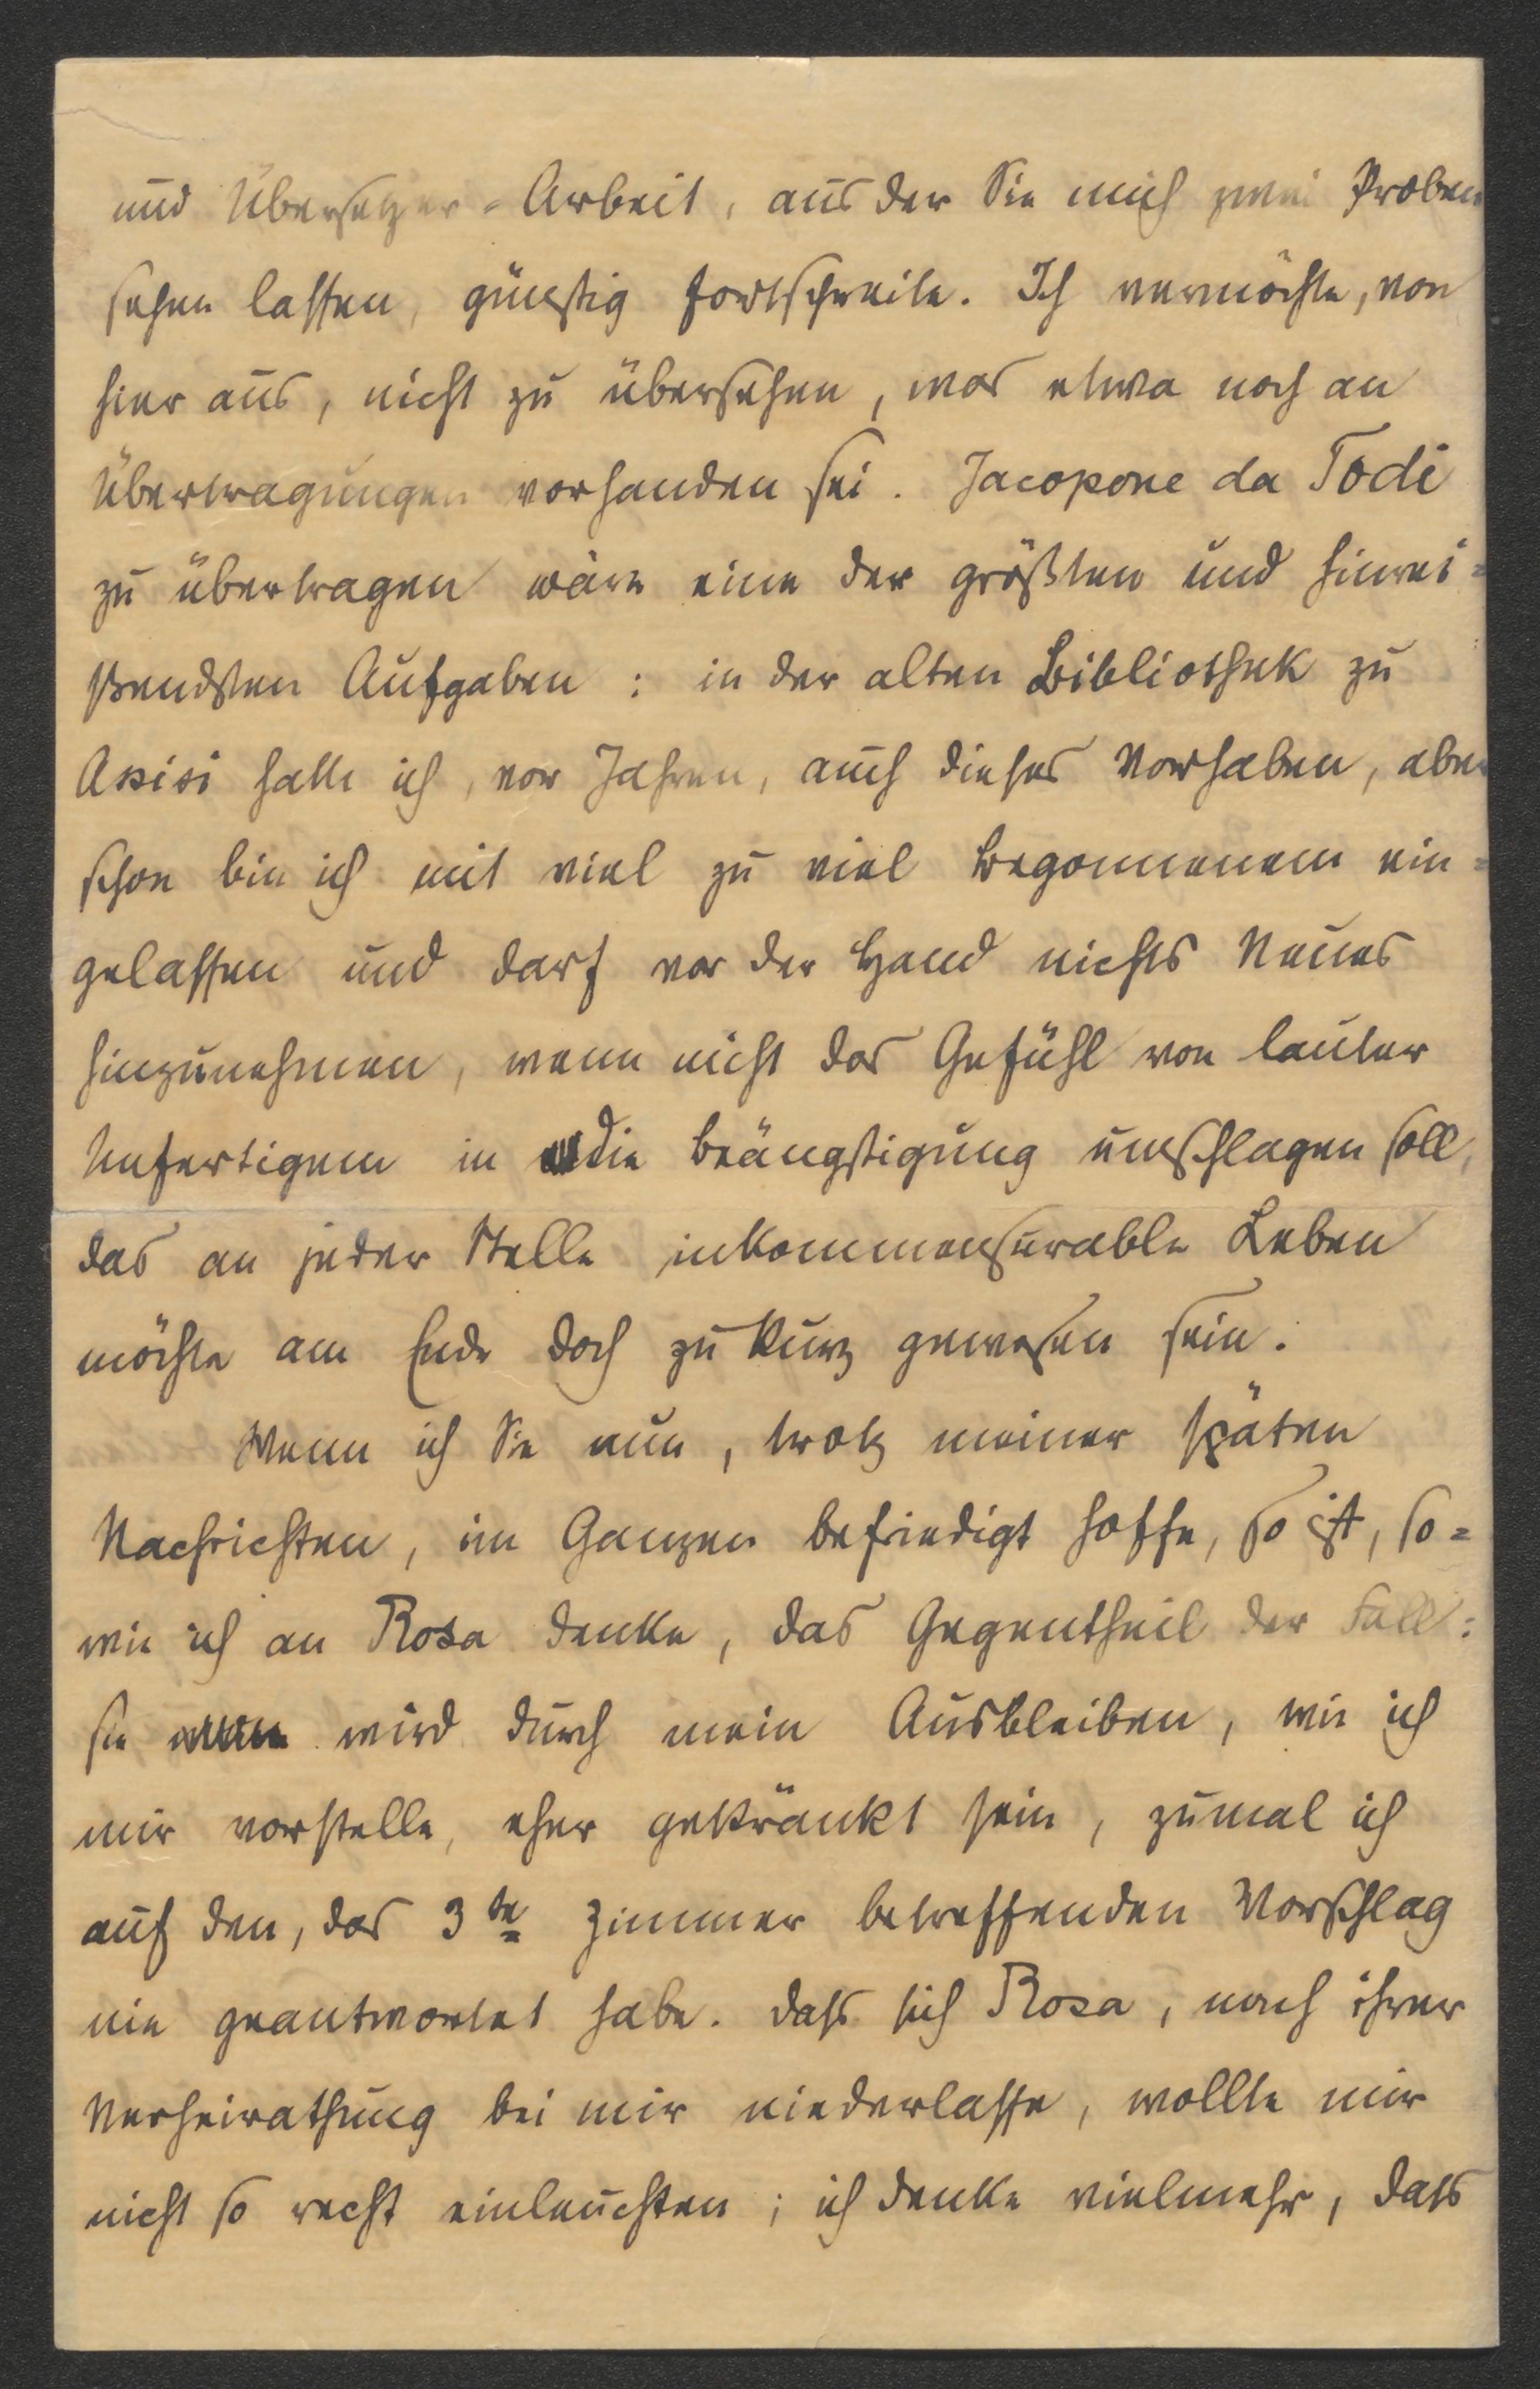 und Übersetzer-Arbeit, aus der Sie mich zwei Proben
sehen lassen, günstig fortschreite. Ich vermöchte, von
hier aus, nicht zu übersehen, was etwa noch an
Übertragungen vorhanden sei. Jacopone da Todi
zu übertragen wäre eine der größten und hinrei=
ßendsten Aufgaben: in der alten Bibliothek zu
Assisi hatte ich, vor Jahren, auch dieses Vorhaben, aber
schon bin ich mit viel zu viel Begonnenem ein=
gelassen und darf vor der Hand nichts Neues
hinzunehmen, wenn nicht das Gefühl von lauter
Unfertigem in die Beängstigung umschlagen soll,
das an jeder Stelle inkommensurable Leben
möchte am Ende doch zu kurz gewesen sein.
Wenn ich Sie nun, trotz meiner späten
Nachrichten, im Ganzen befriedigt hoffe, so ist, so=
wie ich an Rosa denke, das Gegentheil der Fall:
sie wird durch mein Ausbleiben, wie ich
mir vorstelle, eher gekränkt sein, zumal ich
auf den, das 3te Zimmer betreffenden Vorschlag
nie geantwortet habe. Dass sich Rosa, nach ihrer
Verheirathung bei mir niederlasse, wollte mir
nicht so recht einleuchten; ich denke vielmehr, dass